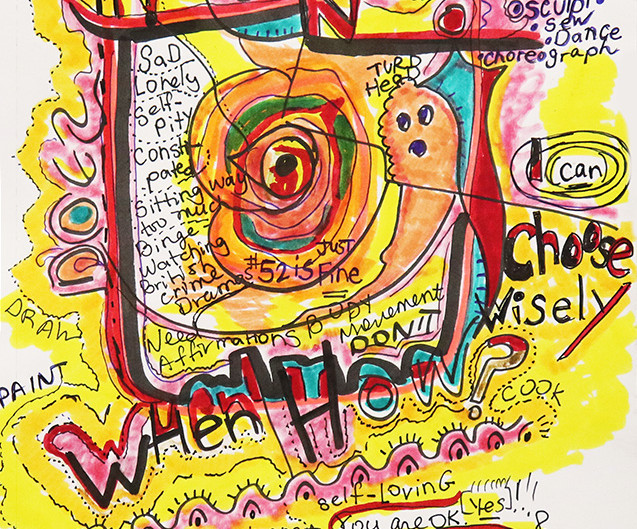 Sculpt
• Sew
• Dance
• choreograph
TURD
HEAD
SaD
Lonely
Self-
Pity
Const-
pated
Sitting way
too much
Binge-
Watching
British
crime
Dramas
#52 is JUST
Fine
Need BUDY
Affirmations Movement
DON'T
I can
Choose
Wisely
DRAW
PAINT
COOK
WHen HOW?
self-loving
You are OK. Yes!!!